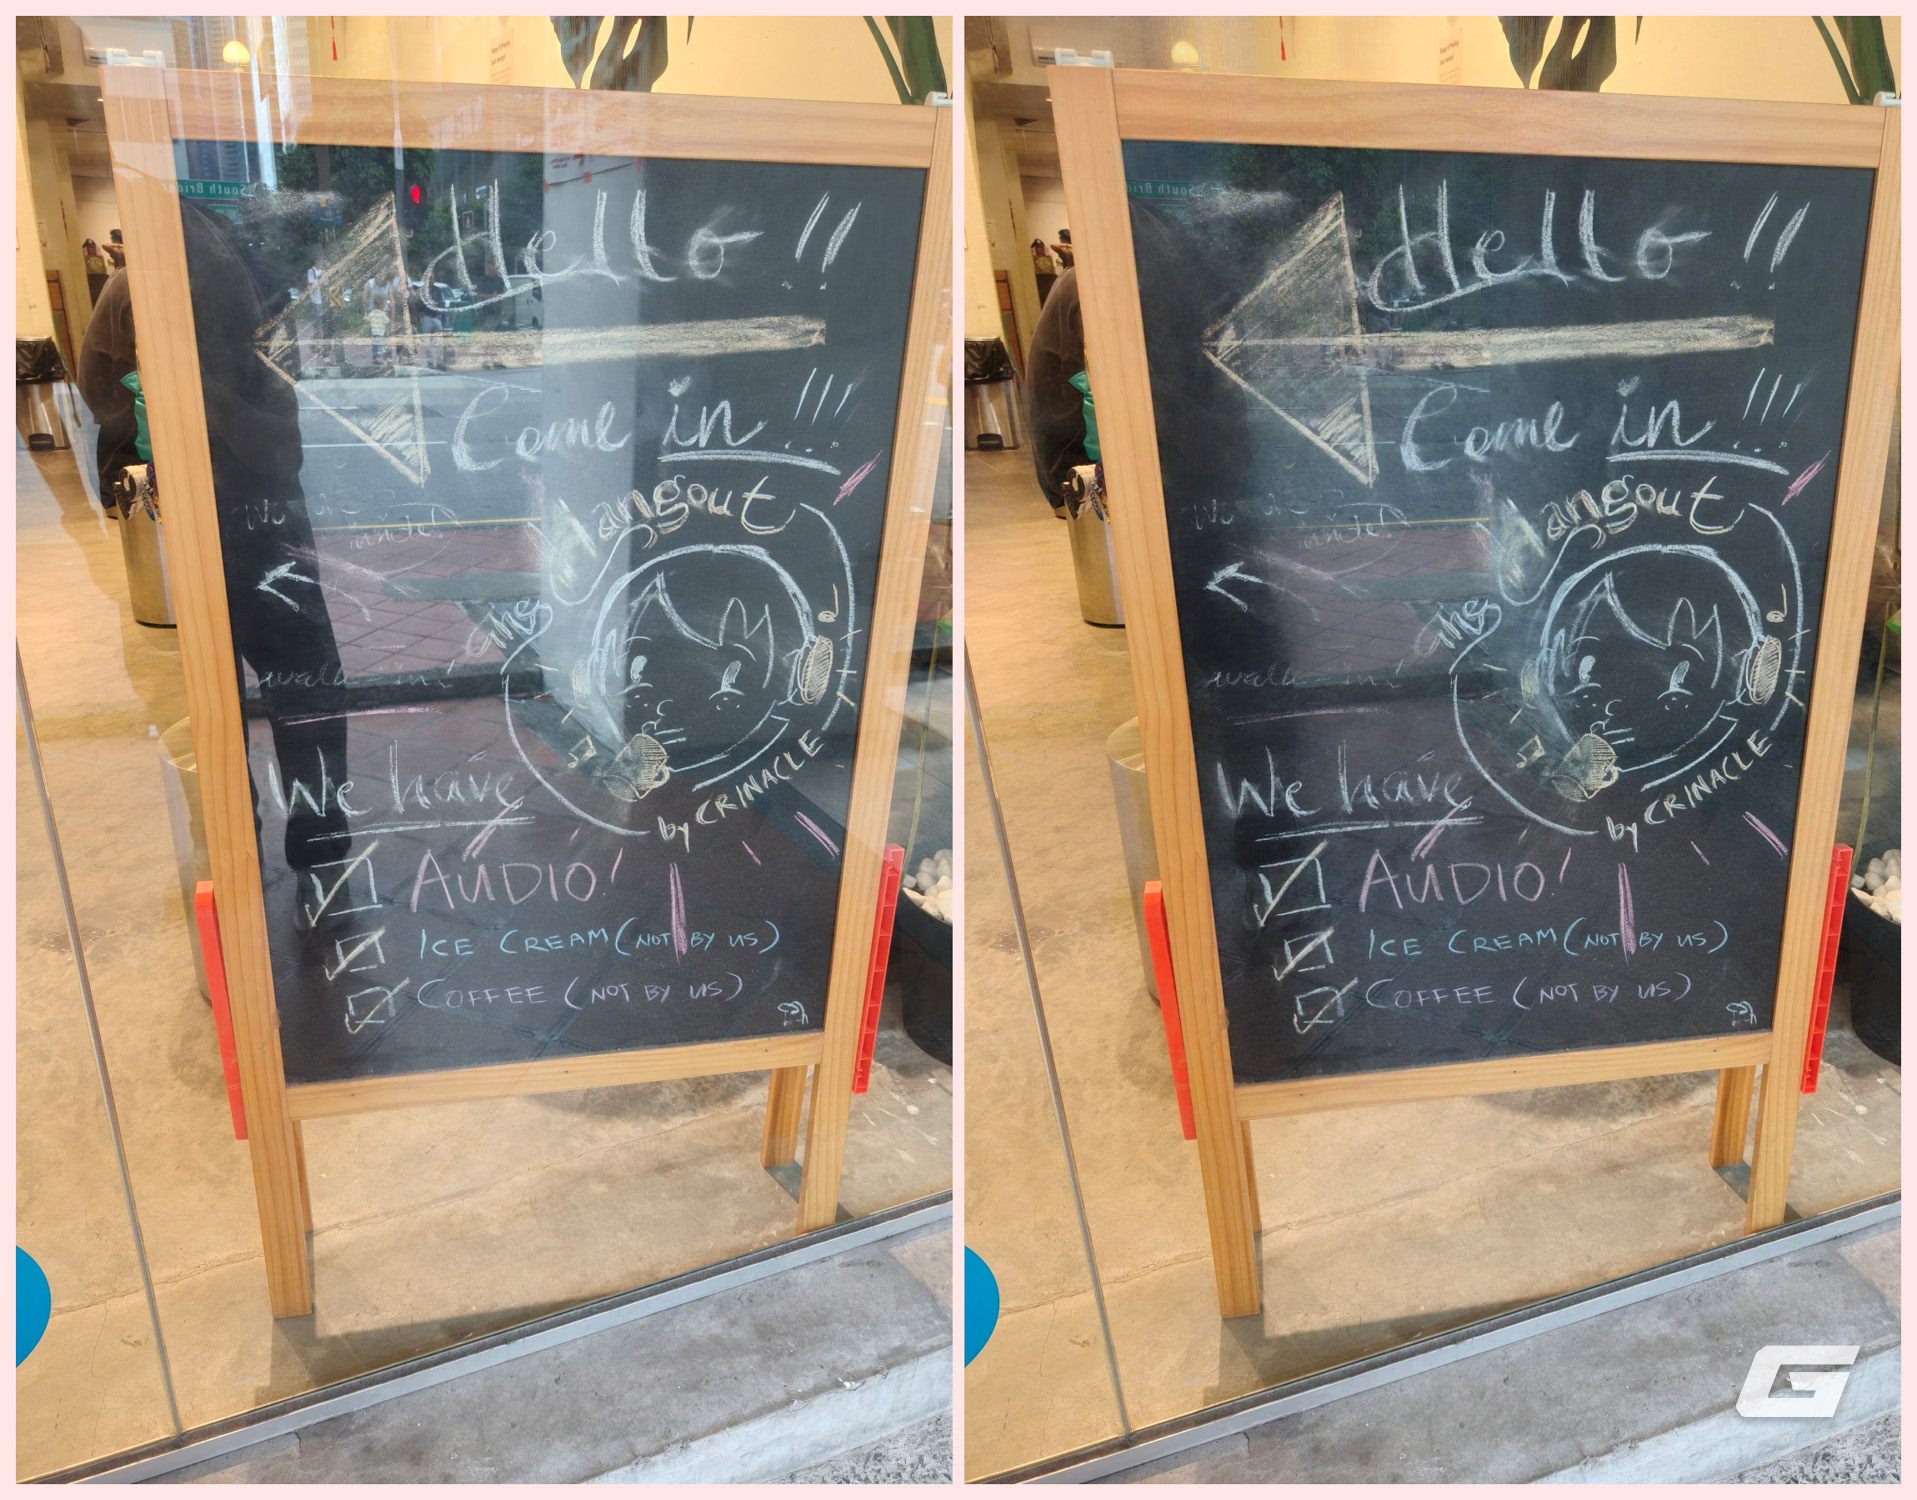 South Bridge
Hello !!
Come in !!!
We are
inside!
Hangout
walk-in!
by CRINACLE
We have
AUDIO!
ICE CREAM (NOT BY US)
COFFEE (NOT BY US)
South Bridge
Hello !!
Come in !!!
inside!
Hangout
walk-in!
by CRINACLE
We have
AUDIO!
ICE CREAM (NOT BY US)
COFFEE (NOT BY US)
G